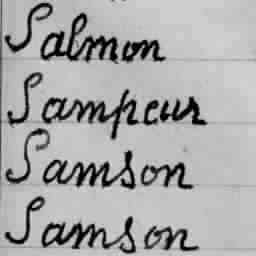 Salmon
Sampeur
Samson
Samson